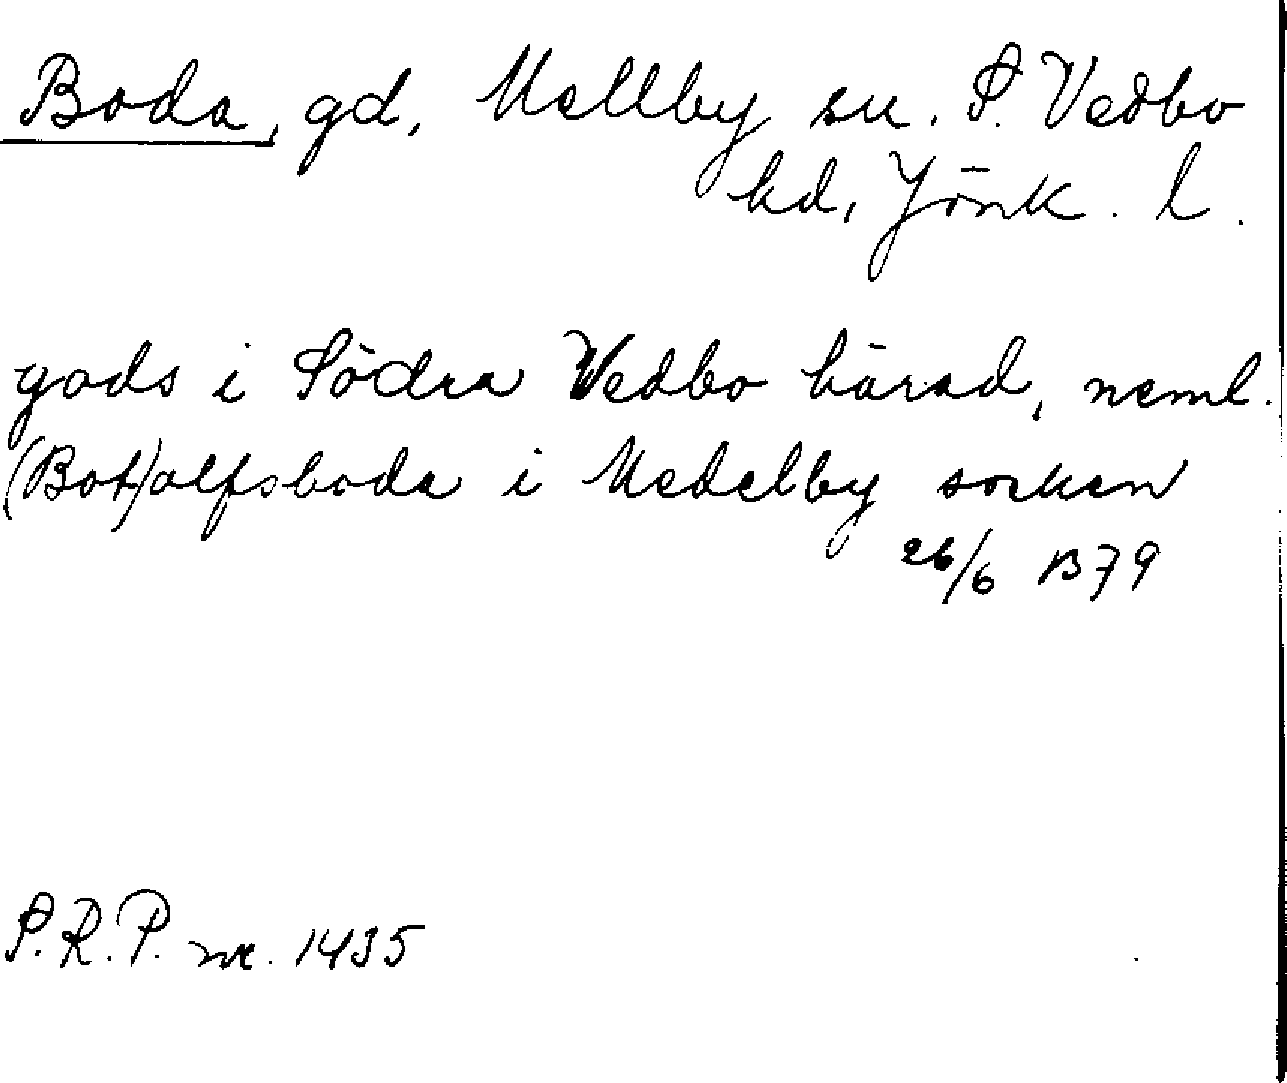 Boda, gd, Mellby sn. S. Vedbo
hd, Jönk. l.
gods i Södra Vedbo härad, neml.
(Bot)olfsboda i Medelby socken
26/6 1379
S.R.P. nr. 1435